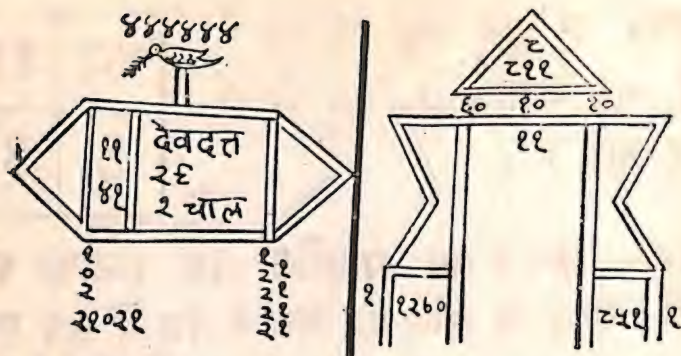 ४४४४४४
११
४१
देवदत्त
२६
२ चाल
१
०
२
२१०२१
१
२ १
२ १
२ १
२ १
८
८११
६० १० १०
११
१
१२६०
८५१
१